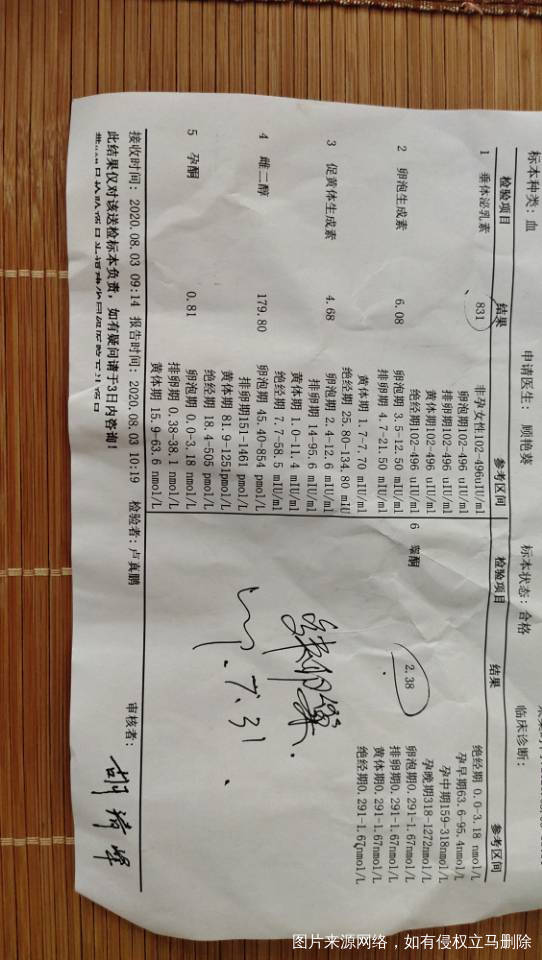 标本种类：血 申请医生： 顾艳葵 标本状态：合格 临床诊断：
检验项目 结果 参考区间 检验项目 结果 参考区间
1 垂体泌乳素 831 非孕女性102-496uIU/ml
卵泡期102-496 uIU/ml
排卵期102-496 uIU/ml
黄体期102-496 uIU/ml
绝经期102-496 uIU/ml
2 卵泡生成素 6.08 卵泡期 3.5-12.50 mIU/ml
排卵期 4.7-21.50 mIU/ml
黄体期 1.7-7.70 mIU/ml
绝经期 25.80-134.80 mIU
3 促黄体生成素 4.68 卵泡期 2.4-12.6 mIU/ml
排卵期 14-95.6 mIU/ml
黄体期 1.0-11.4 mIU/ml
绝经期 7.7-58.5 mIU/ml
4 雌二醇 179.80 卵泡期 45.40-854 pmol/L
排卵期 151-1461 pmol/L
黄体期 81.9-1251pmol/L
绝经期 18.4-505 pmol/L
5 孕酮 0.81 卵泡期 0.0-3.18 nmol/L
排卵期 0.38-38.1 nmol/L
黄体期 15.9-63.6 nmol/L
绝经期 0.0-3.18 nmol/L
孕早期63.6-95.4nmol/L
孕中期159-318nmol/L
孕晚期318-1272nmol/L
6 睾酮 2.38 卵泡期0.291-1.67nmol/L
排卵期0.291-1.67nmol/L
黄体期0.291-1.67nmol/L
绝经期0.291-1.67nmol/L
7.31
接收时间： 2020.08.03 09:14 报告时间：2020.08.03 10:19 检验者：卢真鹏 审核者：
此结果仅对该送检标本负责，如有疑问请于3日内咨询！
图片来源网络，如有侵权立马删除